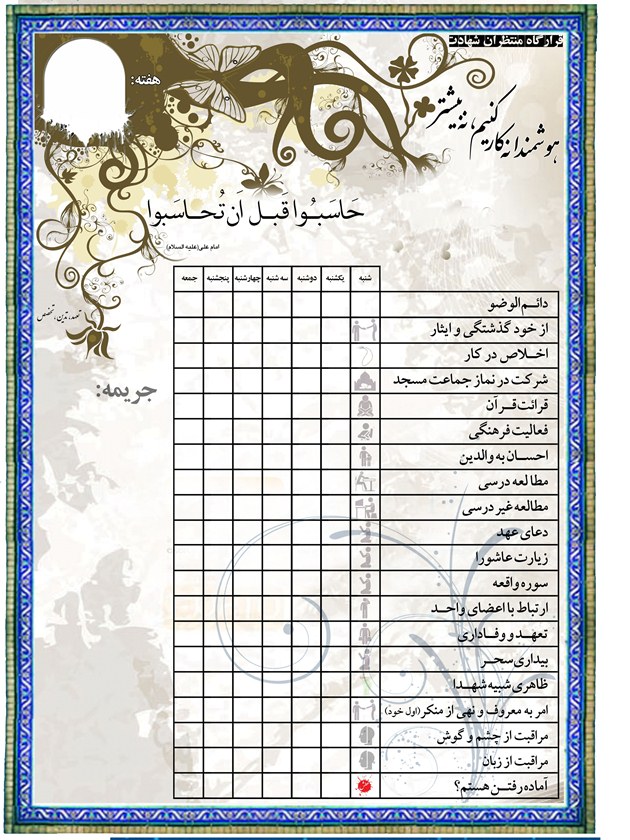 قرارگاه منتظران شهادت
هفته:
هوشمندانه کار کنیم، نه بیشتر
حَاسَبُوا قَبل اَن تُحاسَبوا
امام علی(علیه السلام)
تعهد، تدین، تخصص
جریمه:
شنبه یکشنبه دوشنبه سه شنبه چهارشنبه پنجشنبه جمعه
دائم الوضو
از خود گذشتگی و ایثار
اخلاص در کار
شرکت در نماز جماعت مسجد
قرائت قرآن
فعالیت فرهنگی
احسان به والدین
مطالعه درسی
مطالعه غیر درسی
دعای عهد
زیارت عاشورا
سوره واقعه
ارتباط با اعضای واحد
تعهد و وفاداری
بیداری سحر
ظاهری شبیه شهدا
امر به معروف و نهی از منکر(اول خود)
مراقبت از چشم و گوش
مراقبت از زبان
آماده رفتن هستم؟